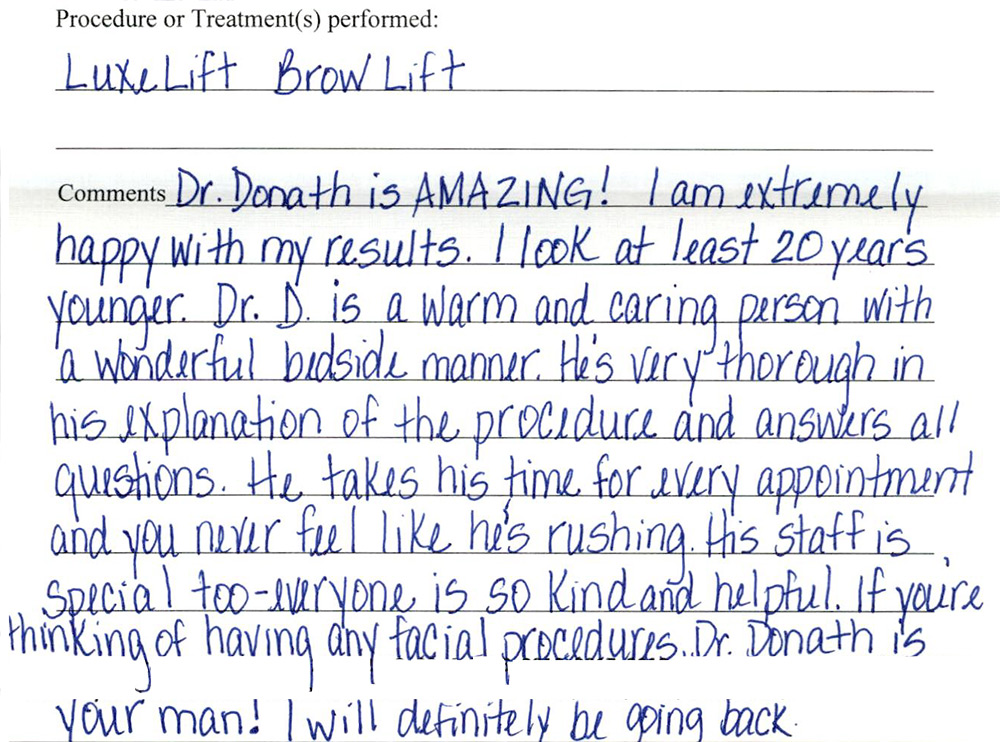 Procedure or Treatment(s) performed:
LuxeLift Brow Lift
Comments Dr. Donath is AMAZING! I am extremely
happy with my results. I look at least 20 years
younger. Dr. D. is a warm and caring person with
a wonderful bedside manner. He's very thorough in
his explanation of the procedure and answers all
questions. He takes his time for every appointment
and you never feel like he's rushing. His staff is
special too-everyone is so kind and helpful. If you're
thinking of having any facial procedures..Dr. Donath is
your man! I will definitely be going back.